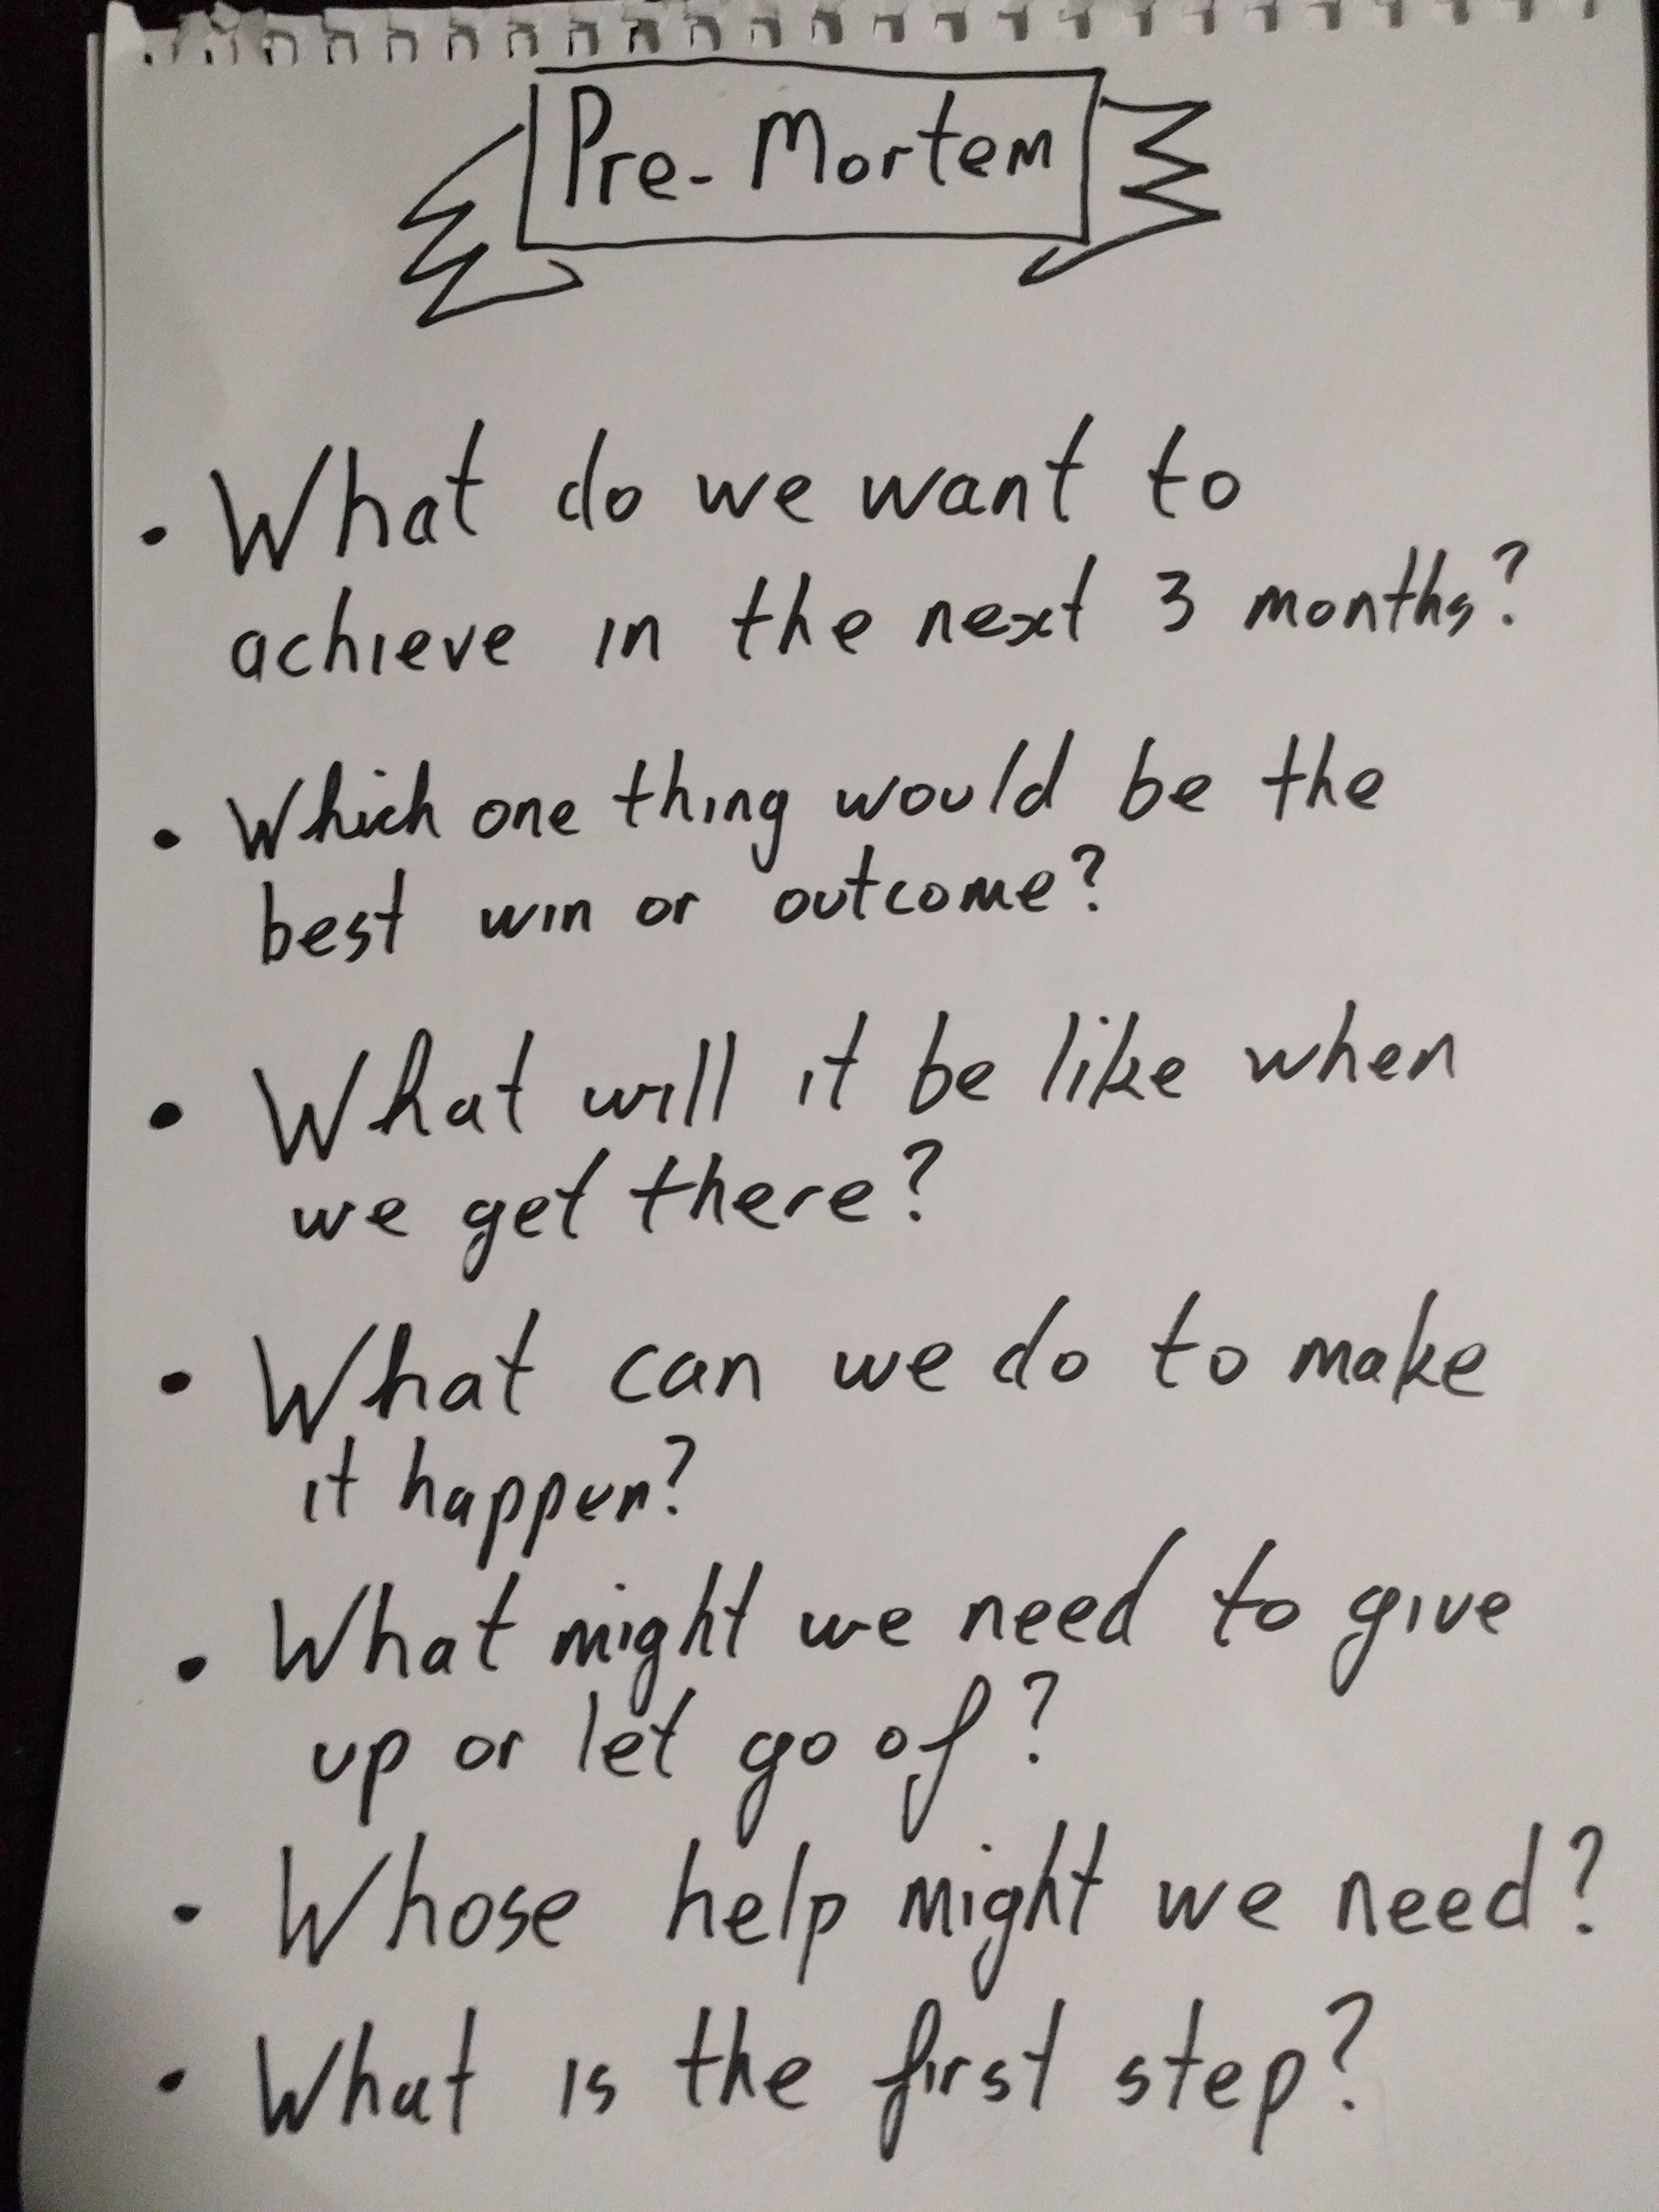 Pre-Mortem
• What do we want to
achieve in the next 3 months?
• Which one thing would be the
best win or outcome?
• What will it be like when
we get there?
• What can we do to make
it happen?
• What might we need to give
up or let go of?
• Whose help might we need?
• What is the first step?